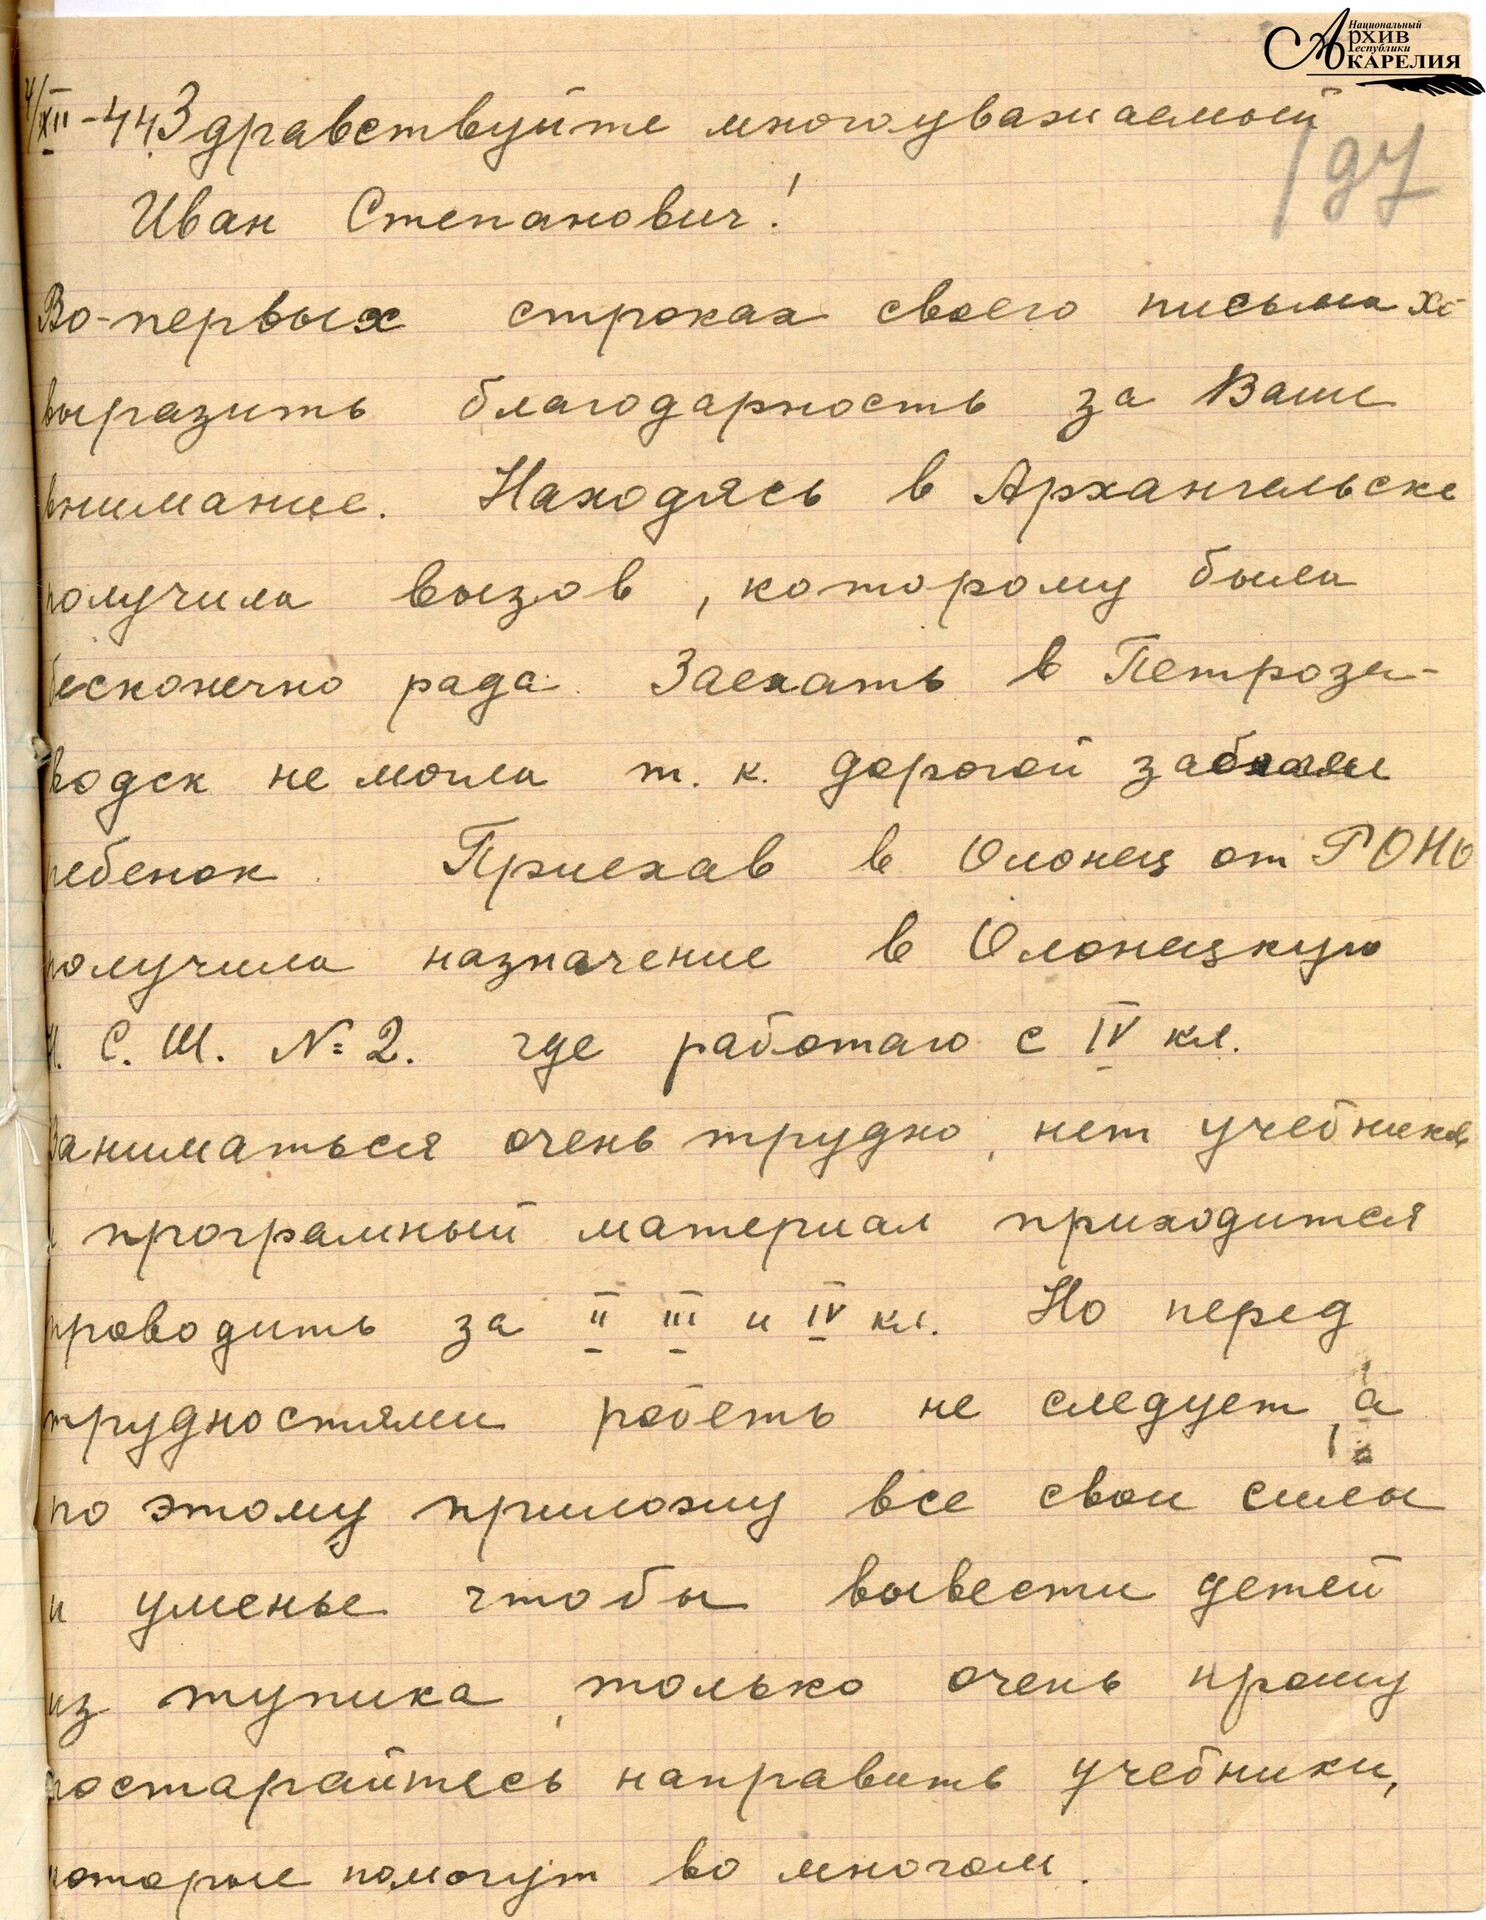 Национальный
Архив
Республики
КАРЕЛИЯ
4/XII-44 Здравствуйте многоуважаемый
197
Иван Степанович!
Во-первых строках своего письма хо-
выразить благодарность за Ваше
внимание. Находясь в Архангельске
получила вызов, которому была
бесконечно рада. Заехать в Петроза-
водск не могла т. к. дорогой заболел
ребенок. Приехав в Олонец от РОНО
получила назначение в Олонецкую
Н. С. Ш. № 2. где работаю с IV кл.
Заниматься очень трудно, нет учебников
и програмный материал приходится
проводить за II III и IV кл. Но перед
трудностями робеть не следует, а
по этому приложу все свои силы
и уменье чтобы вывести детей
из тупика, только очень прошу
постарайтесь направить учебники,
которые помогут во многом.